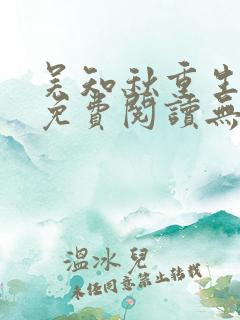 吴知秋重生
免費閱讀無
溫冰兒
未任同意禁止转载